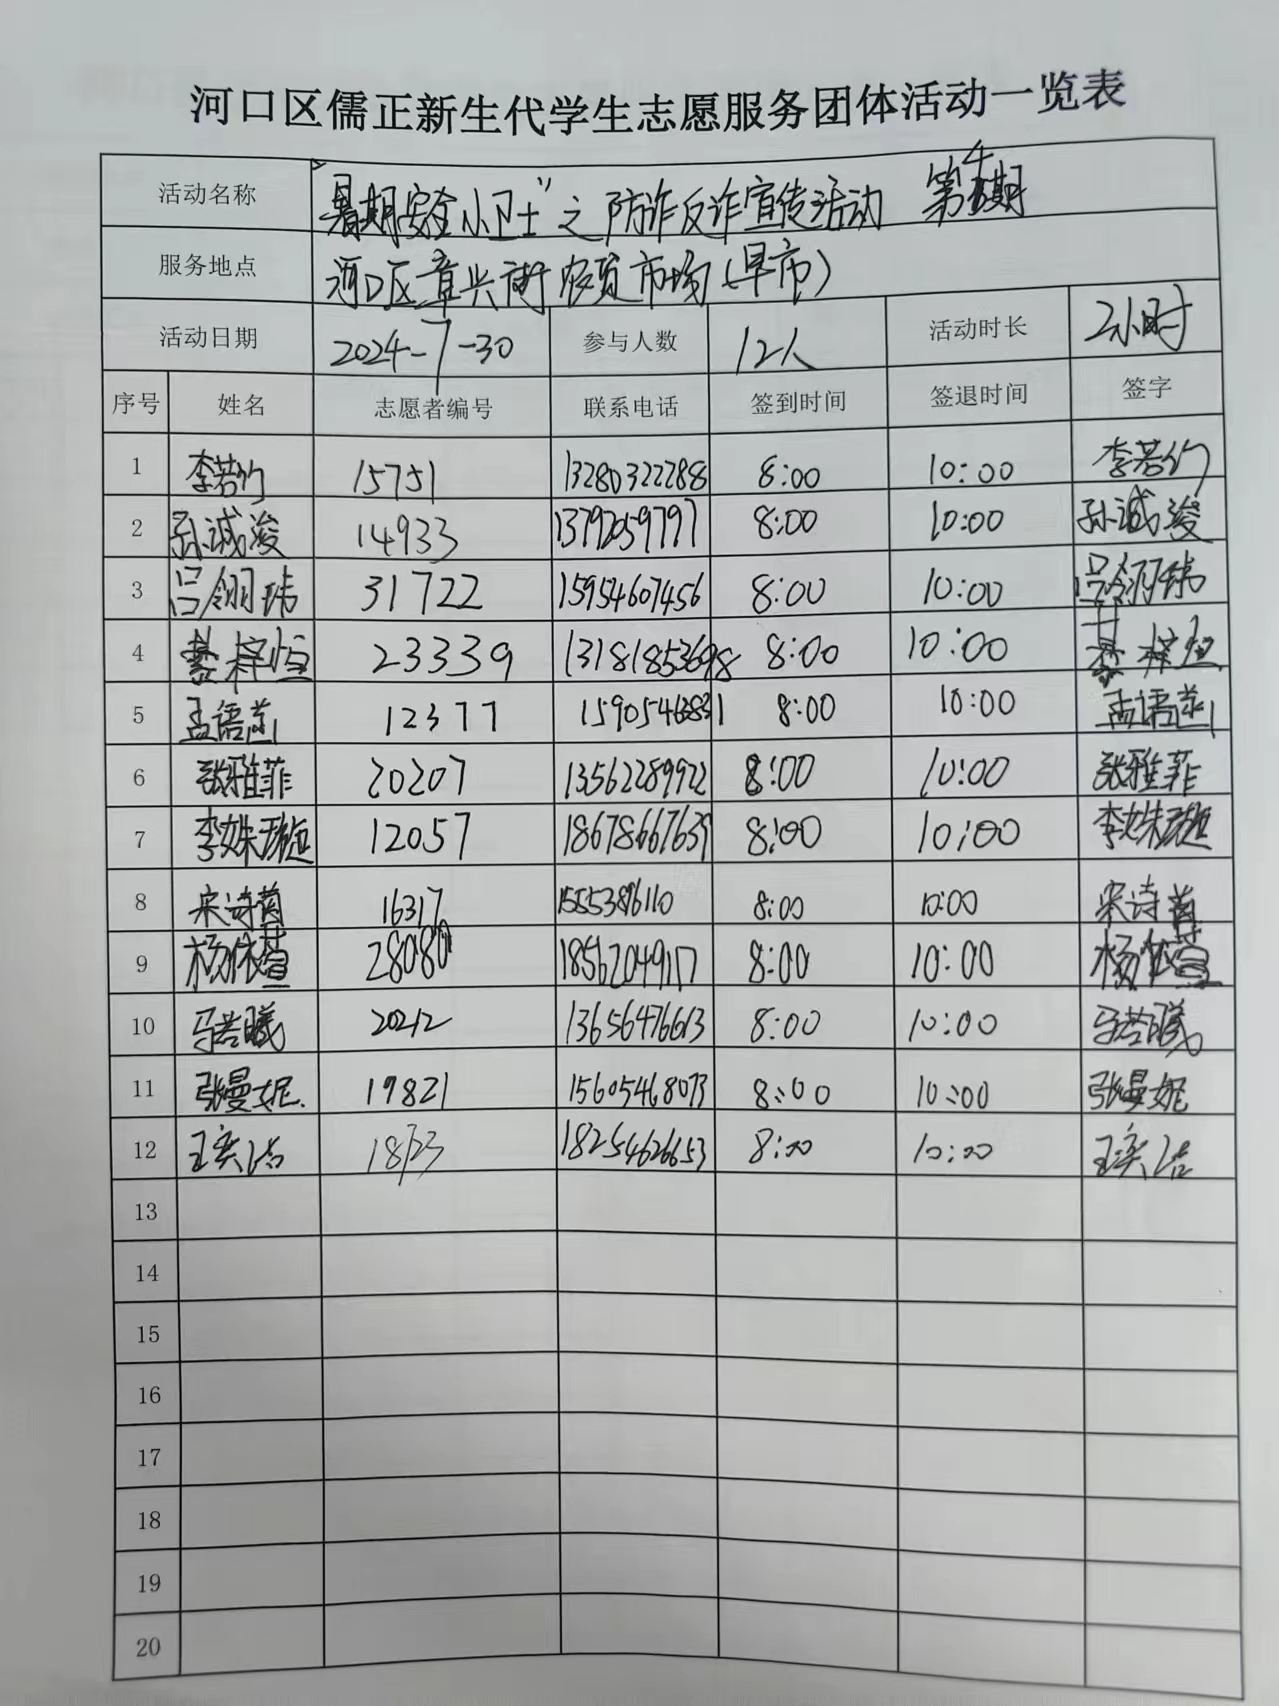 河口区儒正新生代学生志愿服务团体活动一览表
活动名称 "暑期安全小卫士"之防诈反诈宣传活动 第4期
服务地点 河口区章兴街农贸市场(早市)
活动日期 2024-7-30 参与人数 12人 活动时长 2小时
序号 姓名 志愿者编号 联系电话 签到时间 签退时间 签字
1 李若竹 15751 13280322288 8:00 10:00 李若竹
2 孙诚浚 14933 13792059797 8:00 10:00 孙诚浚
3 吕翎玮 31722 15954607456 8:00 10:00 吕翎玮
4 綦梓恒 23339 13181853698 8:00 10:00 綦梓恒
5 孟语 12377 15905463831 8:00 10:00 孟语
6 张雅菲 20207 13562289922 8:00 10:00 张雅菲
7 李姝璇 12057 18678667639 8:00 10:00 李姝璇
8 宋诗茵 16317 8:00 10:00 宋诗茵
9 杨依萱 28080 18562049117 8:00 10:00 杨依萱
10 马若曦 20212 13656476613 8:00 10:00 马若曦
11 张曼妮 19821 15605468073 8:00 10:00 张曼妮
12 王奕洁 18123 18254626653 8:00 10:00 王奕洁
13
14
15
16
17
18
19
20